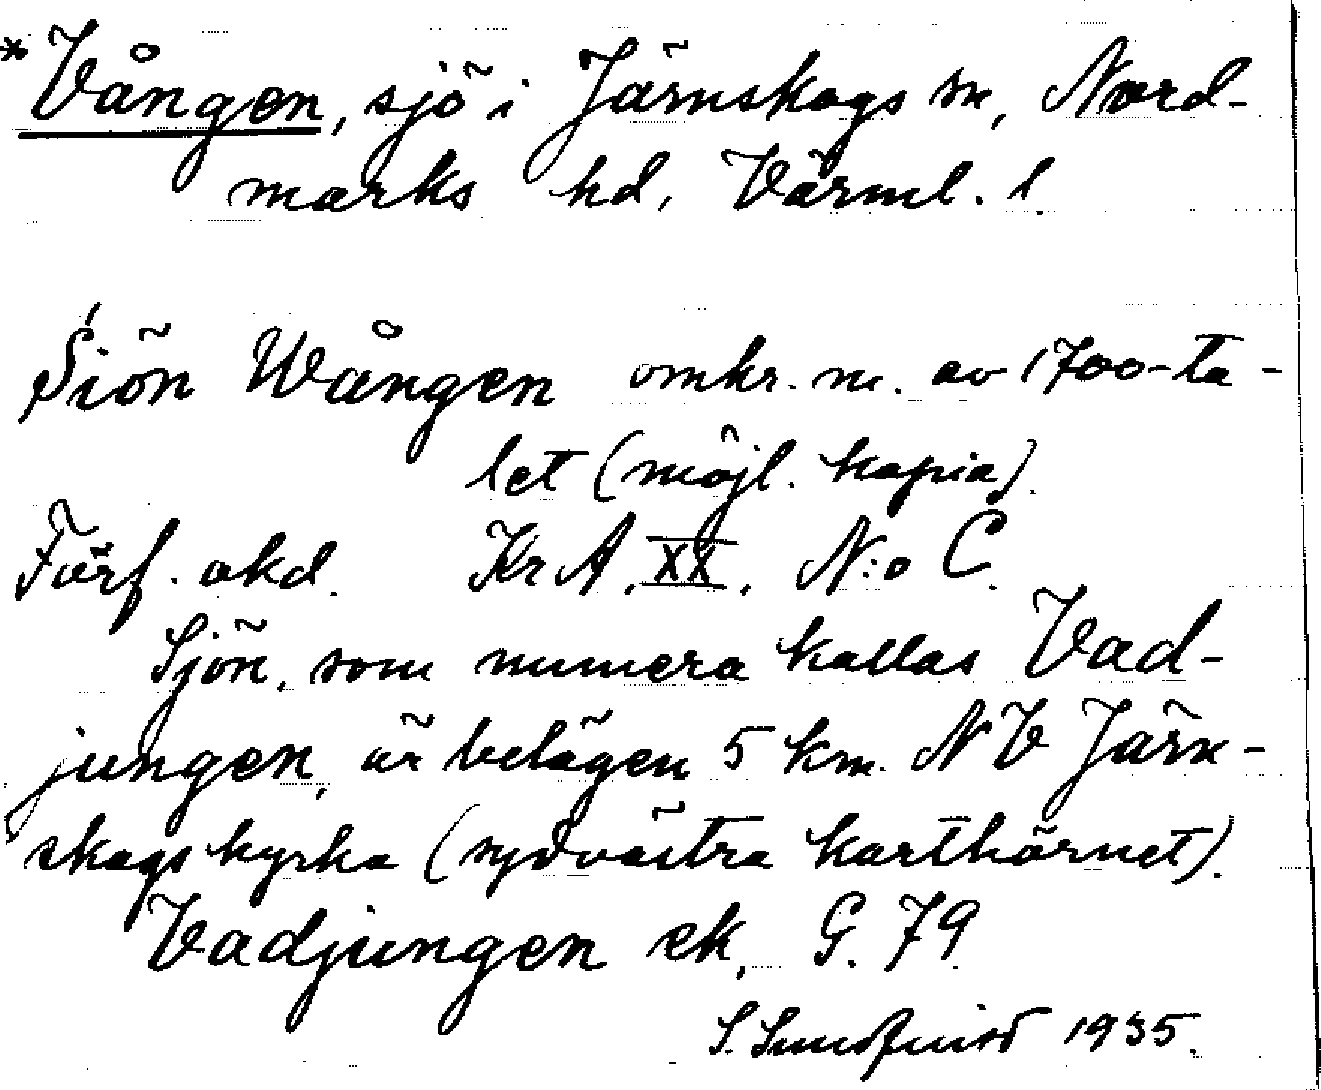 *Vången, sjö i Järnskogs sn, Nord-
marks hd, Värml. l.
Siön Wången omkr. m. av 1700-ta-
let (möjl. kopia).
Förf. okd. KrA. XX. N:o C.
Sjön, som numera kallas Vad-
jungen, är belägen 5 km. NV Järn-
skogs kyrka (sydvästra karthörnet).
Vadjungen ek. G. 79.
S. Sundquist 1935.